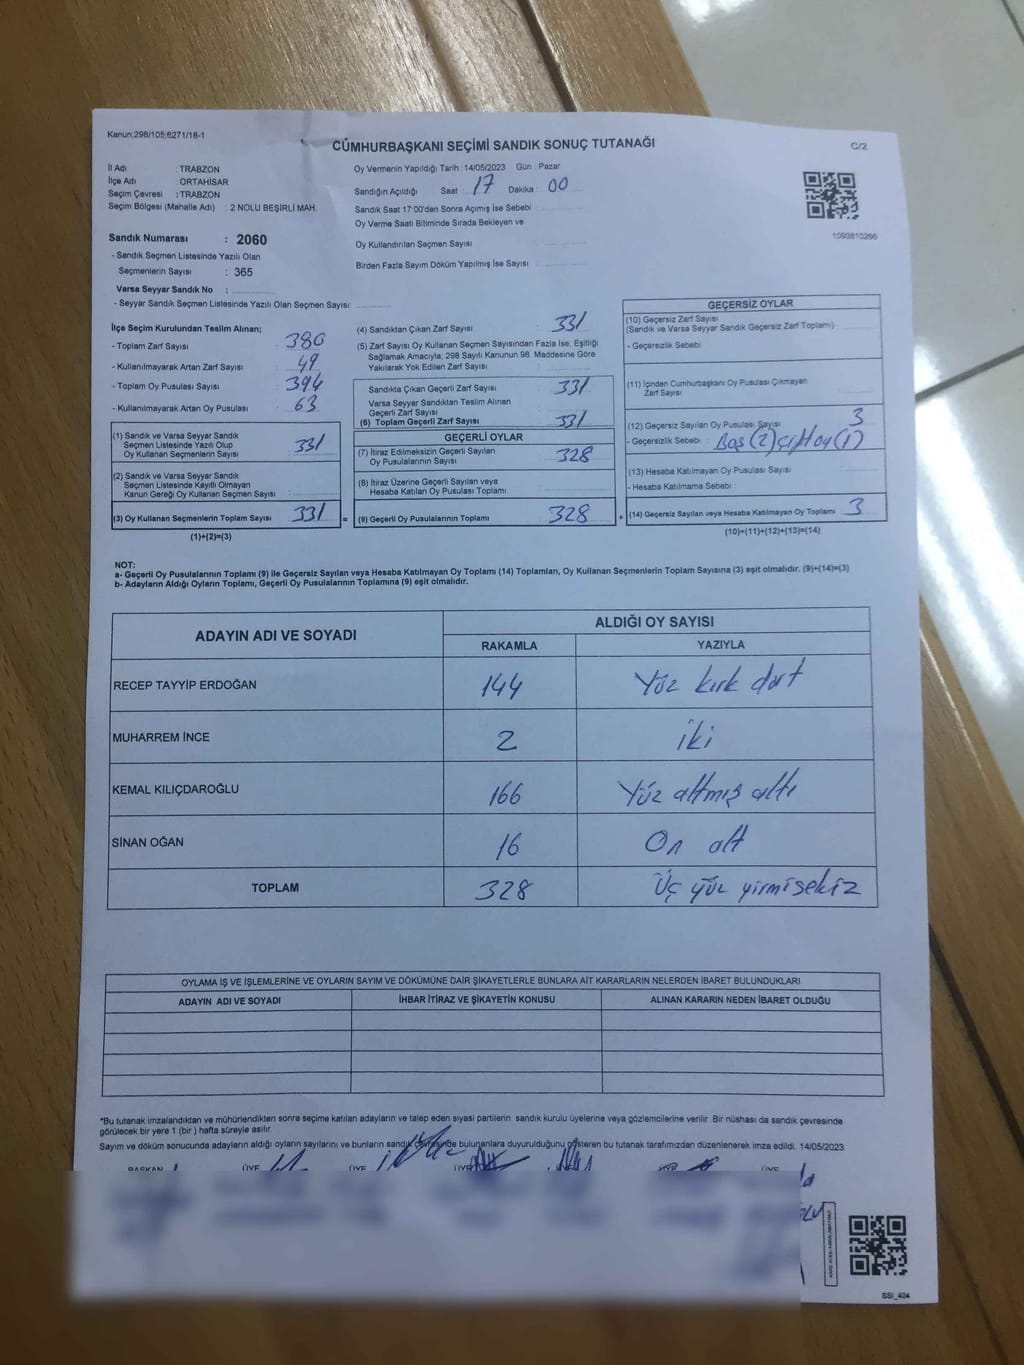 Kanun:298/105;6271/18-1
CUMHURBAŞKANI SEÇİMİ SANDIK SONUÇ TUTANAĞI
C/2
İl Adı : TRABZON
İlçe Adı : ORTAHİSAR
Seçim Çevresi : TRABZON
Seçim Bölgesi (Mahalle Adı) : 2 NOLU BEŞİRLİ MAH.
Oy Vermenin Yapıldığı Tarih :14/05/2023 Gün : Pazar
Sandığın Açıldığı Saat : 17 Dakika : 00
Sandık Saat 17:00'den Sonra Açımış İse Sebebi
Oy Verme Saati Bitiminde Sırada Bekleyen ve
Oy Kullandırılan Seçmen Sayısı
Birden Fazla Sayım Döküm Yapılmış İse Sayısı :
1093810266
Sandık Numarası : 2060
- Sandık Seçmen Listesinde Yazılı Olan
Seçmenlerin Sayısı : 365
Varsa Seyyar Sandık No :
- Seyyar Sandık Seçmen Listesinde Yazılı Olan Seçmen Sayısı:
İlçe Seçim Kurulundan Teslim Alınan;
- Toplam Zarf Sayısı : 380
- Kullanılmayarak Artan Zarf Sayısı : 49
- Toplam Oy Pusulası Sayısı : 394
- Kullanılmayarak Artan Oy Pusulası : 63
(1) Sandık ve Varsa Seyyar Sandık
Seçmen Listesinde Yazılı Olup
Oy Kullanan Seçmenlerin Sayısı : 331
(2) Sandık ve Varsa Seyyar Sandık
Seçmen Listesinde Kayıtlı Olmayan
Kanun Gereği Oy Kullanan Seçmen Sayısı :
(3) Oy Kullanan Seçmenlerin Toplam Sayısı 331 =
(1)+(2)=(3)
(4) Sandıktan Çıkan Zarf Sayısı : 331
(5) Zarf Sayısı Oy Kullanan Seçmen Sayısından Fazla İse, Eşitliği
Sağlamak Amacıyla; 298 Sayılı Kanunun 98. Maddesine Göre
Yakılarak Yok Edilen Zarf Sayısı :
Sandıkta Çıkan Geçerli Zarf Sayısı : 331
Varsa Seyyar Sandıktan Teslim Alınan
Geçerli Zarf Sayısı :
(6) Toplam Geçerli Zarf Sayısı : 331
GEÇERLİ OYLAR
(7) İtiraz Edilmeksizin Geçerli Sayılan
Oy Pusulalarının Sayısı : 328
(8) İtiraz Üzerine Geçerli Sayılan veya
Hesaba Katılan Oy Pusulası Toplamı :
(9) Geçerli Oy Pusulalarının Toplamı 328 +
GEÇERSİZ OYLAR
(10) Geçersiz Zarf Sayısı
(Sandık ve Varsa Seyyar Sandık Geçersiz Zarf Toplamı) :
- Geçersizlik Sebebi
(11) İçinden Cumhurbaşkanı Oy Pusulası Çıkmayan
Zarf Sayısı :
(12) Geçersiz Sayılan Oy Pusulası Sayısı 3
- Geçersizlik Sebebi : Boş (2) Çift oy (1)
(13) Hesaba Katılmayan Oy Pusulası Sayısı :
- Hesaba Katılmama Sebebi :
(14) Geçersiz Sayılan veya Hesaba Katılmayan Oy Toplamı : 3
(10)+(11)+(12)+(13)=(14)
NOT:
a- Geçerli Oy Pusulalarının Toplamı (9) ile Geçersiz Sayılan veya Hesaba Katılmayan Oy Toplamı (14) Toplamları, Oy Kullanan Seçmenlerin Toplam Sayısına (3) eşit olmalıdır. (9)+(14)=(3)
b- Adayların Aldığı Oyların Toplamı, Geçerli Oy Pusulalarının Toplamına (9) eşit olmalıdır.
ADAYIN ADI VE SOYADI
ALDIĞI OY SAYISI
RAKAMLA YAZIYLA
RECEP TAYYİP ERDOĞAN 144 Yüz kırk dört
MUHARREM İNCE 2 iki
KEMAL KILIÇDAROĞLU 166 Yüz altmış altı
SİNAN OĞAN 16 On altı
TOPLAM 328 Üç yüz yirmi sekiz
OYLAMA İŞ VE İŞLEMLERİNE VE OYLARIN SAYIM VE DÖKÜMÜNE DAİR ŞİKAYETLERLE BUNLARA AİT KARARLARIN NELERDEN İBARET BULUNDUKLARI
ADAYIN ADI VE SOYADI İHBAR İTİRAZ VE ŞİKAYETİN KONUSU ALINAN KARARIN NEDEN İBARET OLDUĞU
*Bu tutanak imzalandıktan ve mühürlendikten sonra seçime katılan adayların ve talep eden siyasi partilerin sandık kurulu üyelerine veya gözlemcilerine verilir. Bir nüshası da sandık çevresinde
görülecek bir yere 1 (bir ) hafta süreyle asılır.
Sayım ve döküm sonucunda adayların aldığı oyların sayılarını ve bunların sandık çevresinde bulunanlara duyurulduğunu gösteren bu tutanak tarafımızdan düzenlenerek imza edildi. 14/05/2023
BAŞKAN ÜYE ÜYE ÜYE ÜYE ÜYE
SSI_404